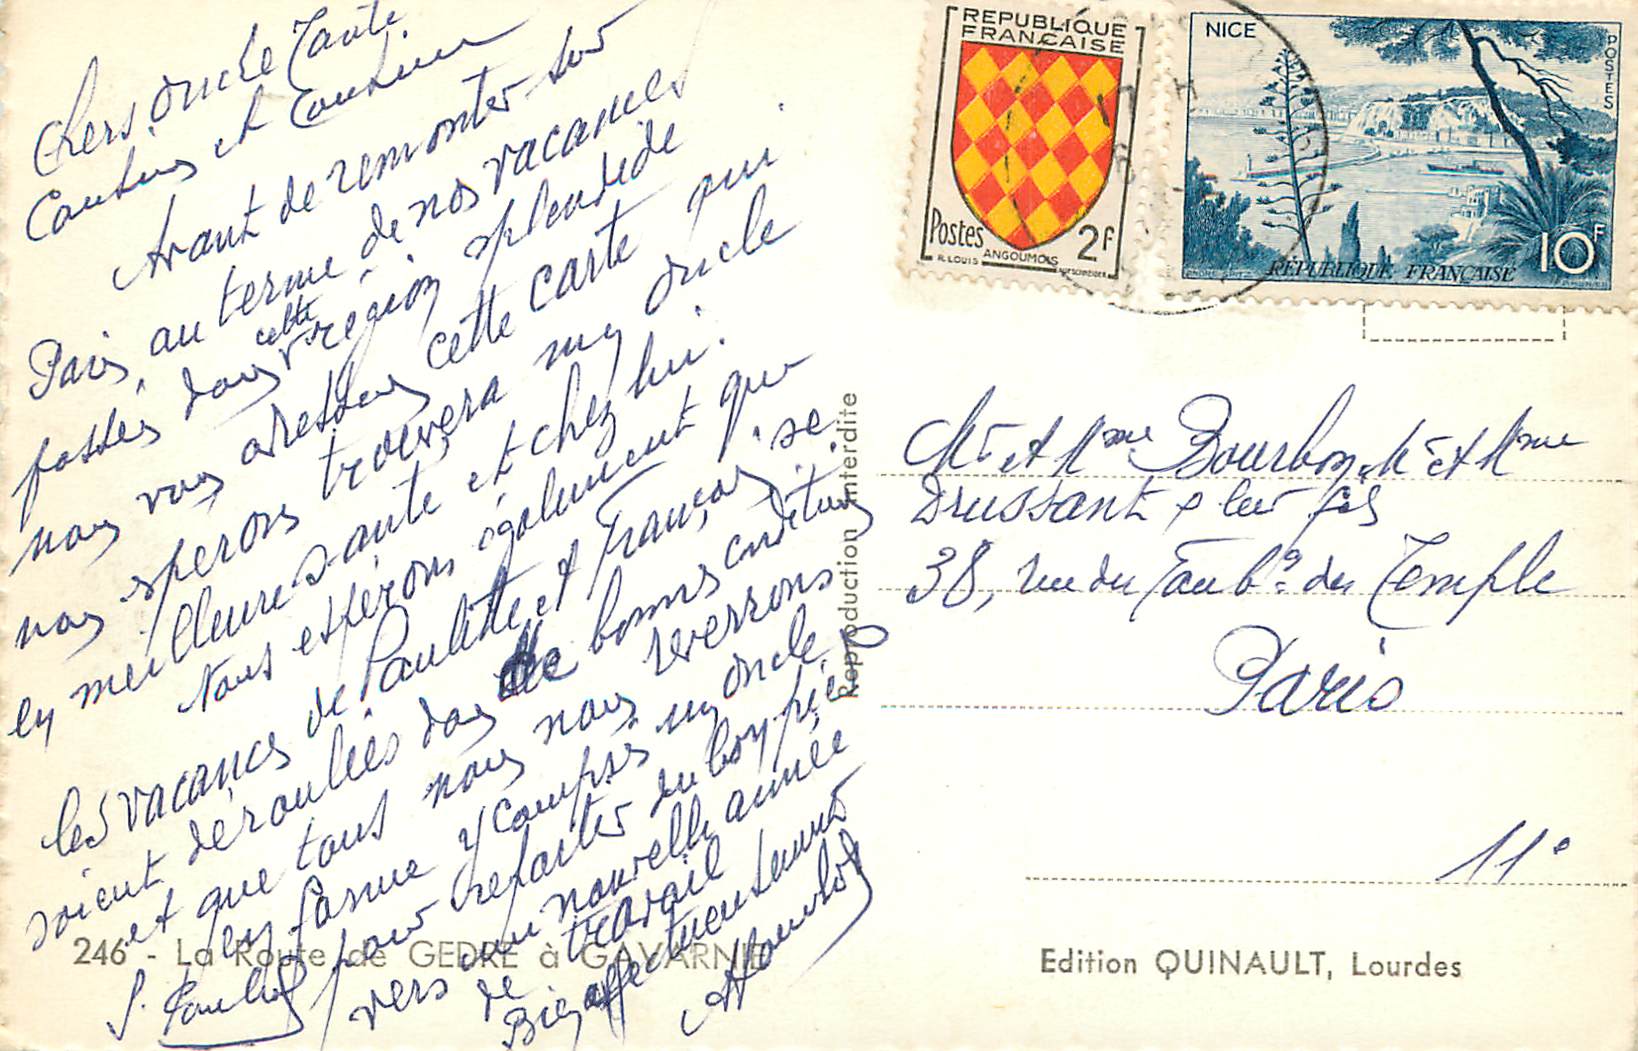 Chers oncle Tante
Cousins et Cousine
Avant de remonter sur
Paris, au terme de nos vacances
passées dans cette région splendide
nous vous adressons cette carte qui
nous sperons trouvera my oncle
en meilleure sante et chez lui.
Nous espérons également que
les vacances de Paulette et François se
soient déroulées dans de bonnes conditions
et que tous nous nous reverrons
en forme y compris my oncle
pour refaiter du bon pied
vers une nouvelle année
de travail
Bien affectueusement
REPUBLIQUE
FRANÇAISE
Postes 2F
R. LOUIS ANGOUMOIS
NICE
POSTES
10F
RÉPUBLIQUE FRANÇAISE
Mr et Mme Bourbon, Mr et Mme
Drussant & leur fils
38, rue du Faubg du Temple
Paris
11e
Reproduction Interdite
246 - La Route de GEDRE à GAVARNIE
Edition QUINAULT, Lourdes